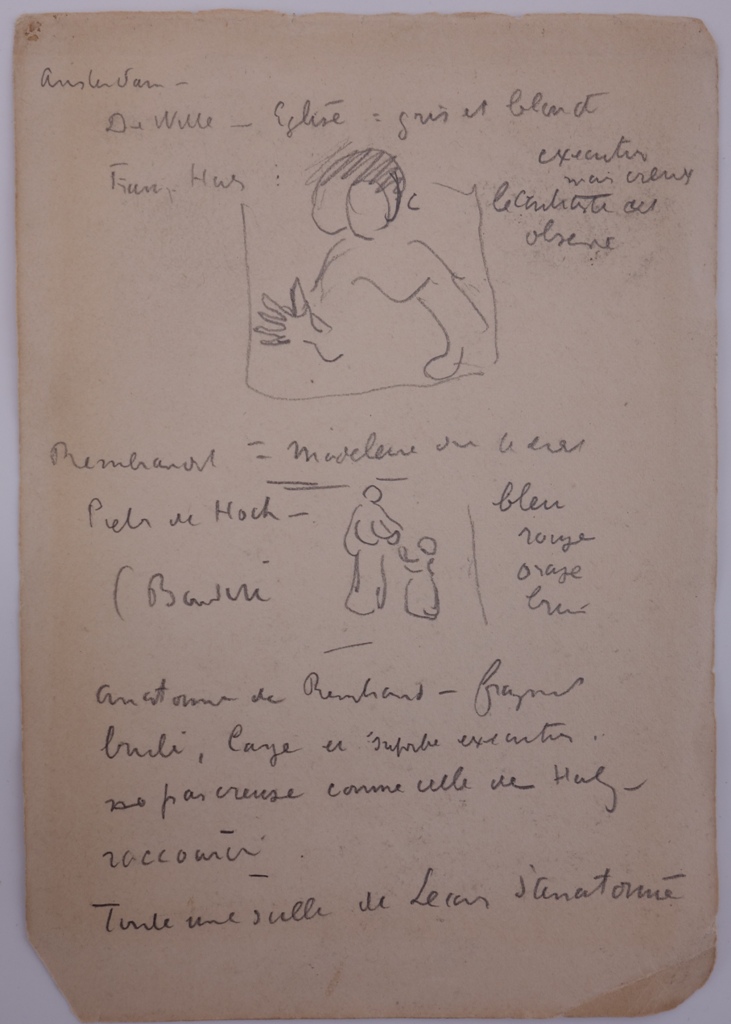 Amsterdam –
De Witte – Eglise = gris et blanc
Franz Hals :
execution
mais creux
obscene
Rembrandt = Madeleine
Pieter de Hoch –
bleu
rouge
orange
brun
(
anatomie de Rembrand – fragment
brulé, large et superbe execution.
pas creuse comme celle de Hals –
raccourci
Toute une salle de Lecons d'anatomie